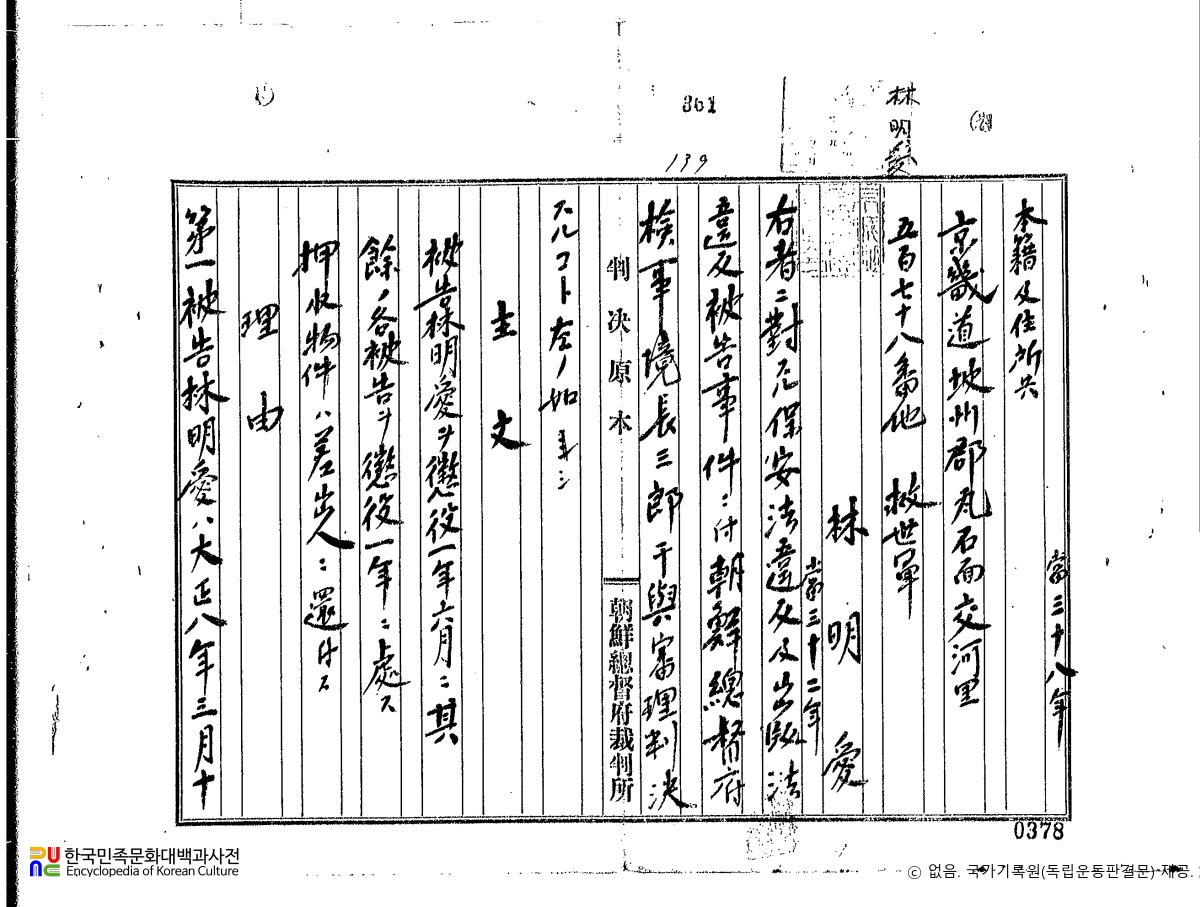 林明愛
361
139
當三十八年
本籍及住所共
京畿道坡州郡瓦石面交河里
五百七十八番地 救世軍
林明愛
當三十二年
右者ニ對スル保安法違反及出版法
違反被告事件ニ付朝鮮總督府
檢事境長三郎干與審理判決
判決原本
朝鮮總督府裁判所
スルコト左ノ如シ
主文
被告林明愛ヲ懲役一年六月ニ其
餘ノ各被告ヲ懲役一年ニ處ス
押收物件ハ差出人ニ還付ス
理由
第一被告林明愛ハ大正八年三月十
0378
한국민족문화대백과사전
Encyclopedia of Korean Culture
ⓒ 없음. 국가기록원(독립운동판결문) 제공.